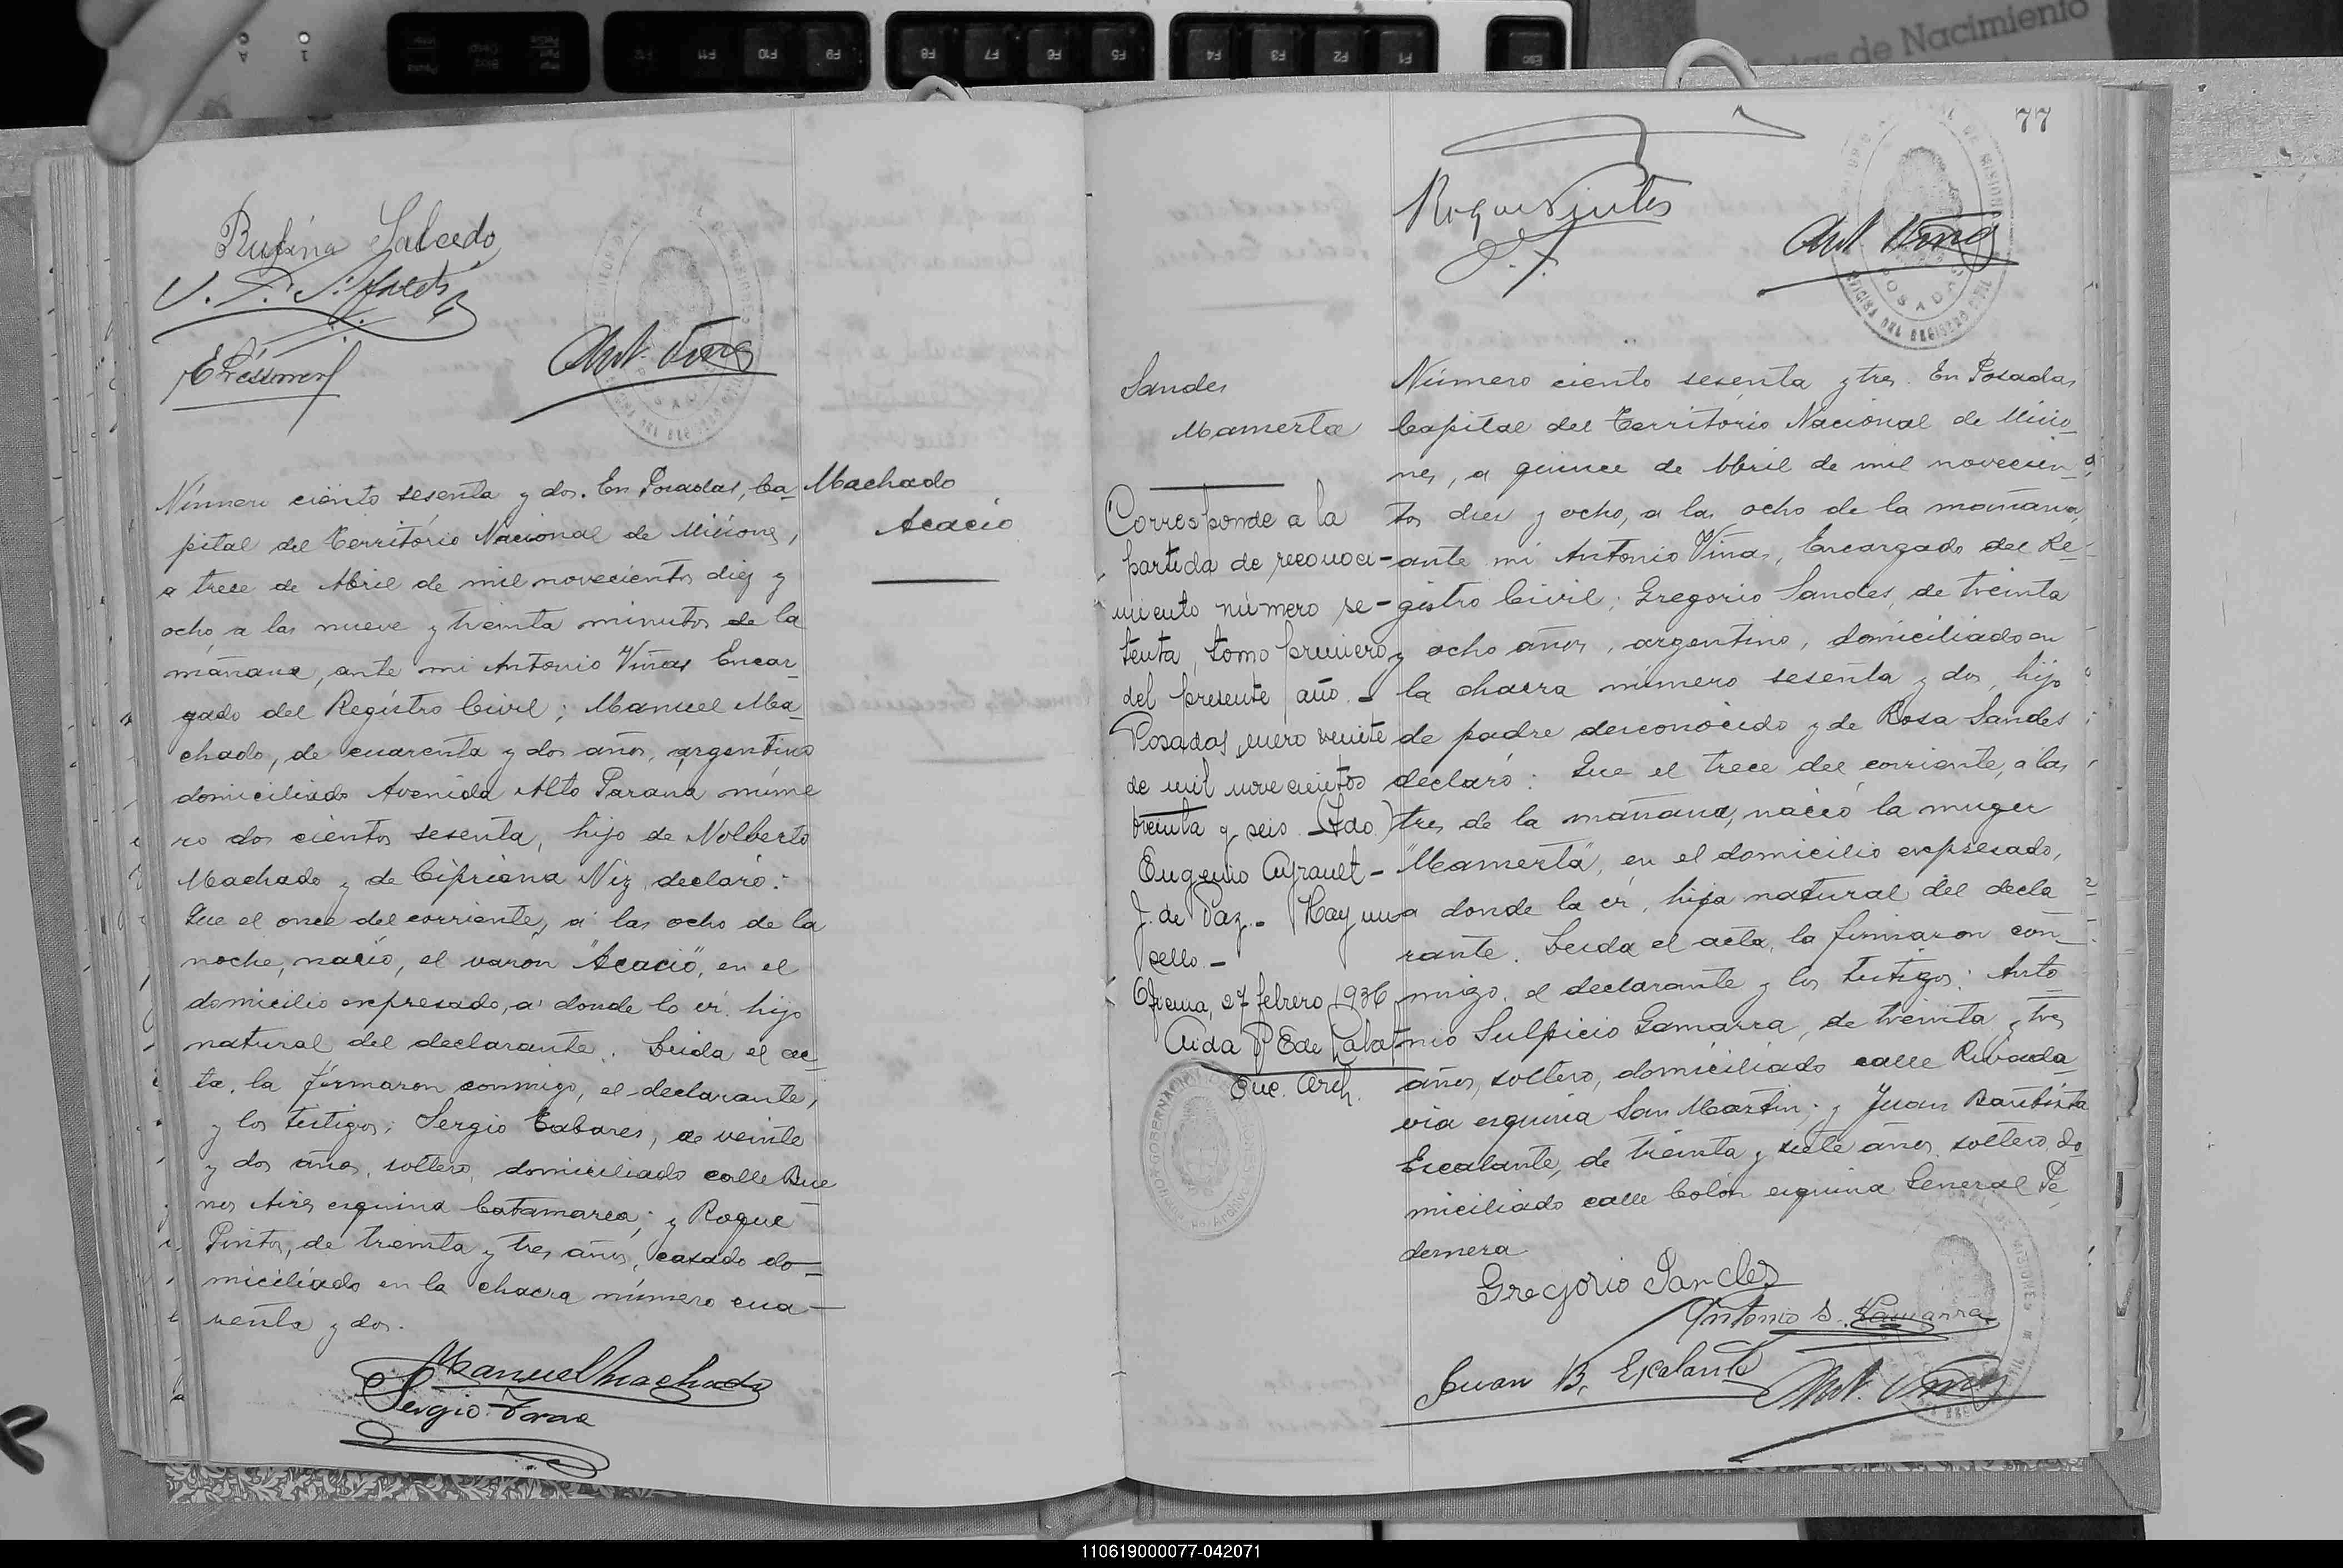 F9
F10
F11
F8
F7
F6
F5
F4
F3
F2
F1
Esc
de Nacimiento
Rufina Salcedo
Ant. Viñas
Número ciento sesenta y dos. En Posadas, Ca-
pital del Territorio Nacional de Misiones,
a trece de Abril de mil novecientos diez y
ocho, a las nueve y treinta minutos de la
mañana, ante mi Antonio Viñas Encar-
gado del Registro Civil; Manuel Ma-
chado, de cuarenta y dos años, argentino
domiciliado Avenida Alto Paraná núme
ro dos cientos sesenta, hijo de Nolberto
Machado y de Cipriana Niz, declaró:
Que el once del corriente, a las ocho de la
noche, nació, el varon "Acacio", en el
domicilio expresado, a donde lo es. hijo
natural del declarante. Leida el ac-
ta, la firmaron conmigo, el declarante,
y los testigos; Sergio Tabares, de veinte
y dos años, soltero, domiciliado calle Bue
nos Aires esquina Catamarca; y Roque
Pintos, de treinta y tres años, casado do-
miciliado en la chacra número cua-
renta y dos.
Manuel Machado
Sergio
Machado
Acacio
77
Roque Pintos
Ant. Viñas
POSADAS
OFICINA DEL REGISTRO CIVIL
Sandes
Mamerta
Corresponde a la
partida de reconoci-
miento número se-
tenta, tomo primero,
del presente año.-
Posadas, enero veinte
de mil novecientos
treinta y seis.-(Fdo.)
Eugenio Ayrault-
J. de Paz.- Hay un
sello.-
Oficina, 27 febrero 1936
Aida P. E de
Enc. Arch.
Número ciento sesenta y tres. En Posadas,
Capital del Territorio Nacional de Misio-
nes, a quince de Abril de mil novecien-
tos diez y ocho, a las ocho de la mañana,
ante mi Antonio Viñas, Encargado del Re-
gistro Civil; Gregorio Sandes, de treinta
y ocho años, argentino, domiciliado en
la chacra número sesenta y dos, hijo
de padre desconocido y de Rosa Sandes
declaró: Que el trece del corriente, a las
tres de la mañana, nació la muger
"Mamerta", en el domicilio expresado,
a donde la es, hija natural del decla
rante. Leida el acta, la firmaron con-
migo, el declarante y los testigos: Anto
nio Sulpicio Gamarra, de treinta y tres
años, soltero, domiciliado calle Rivada
via esquina San Martin; y Juan Bautista
Escalante, de treinta y siete años, soltero, do
miciliado calle Colón esquina General Pe
dernera
Gregorio Sandes
Antonio S. Gamarra
Juan B. Escalante
Ant. Viñas
110619000077-042071